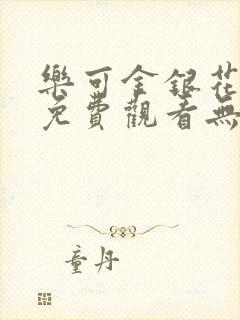 樂可金銀花
免費觀看無
童丹